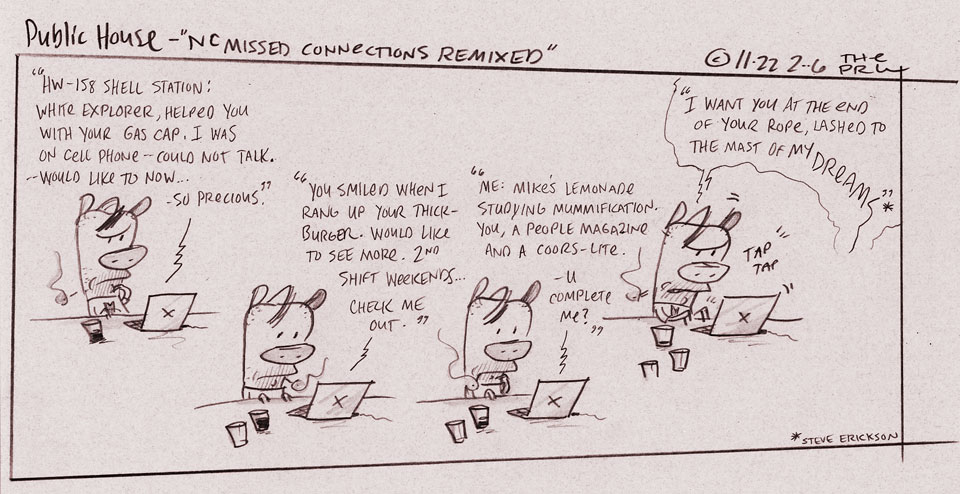 Public House - "NC MISSED CONNECTIONS REMIXED"
© 11-22 2-6 THE
PRU
"HW-158 SHELL STATION:
WHITE EXPLORER, HELPED YOU
WITH YOUR GAS CAP. I WAS
ON CELL PHONE -- COULD NOT TALK.
-- WOULD LIKE TO NOW...
- SO PRECIOUS."
"YOU SMILED WHEN I
RANG UP YOUR THICK-
BURGER. WOULD LIKE
TO SEE MORE. 2ND
SHIFT WEEKENDS...
CHECK ME
OUT."
"ME: MIKE'S LEMONADE
STUDYING MUMMIFICATION.
YOU, A PEOPLE MAGAZINE
AND A COORS-LITE.
- U
COMPLETE
ME?"
"I WANT YOU AT THE END
OF YOUR ROPE, LASHED TO
THE MAST OF MY DREAMS"*
TAP
TAP
X
X
X
X
*STEVE ERICKSON